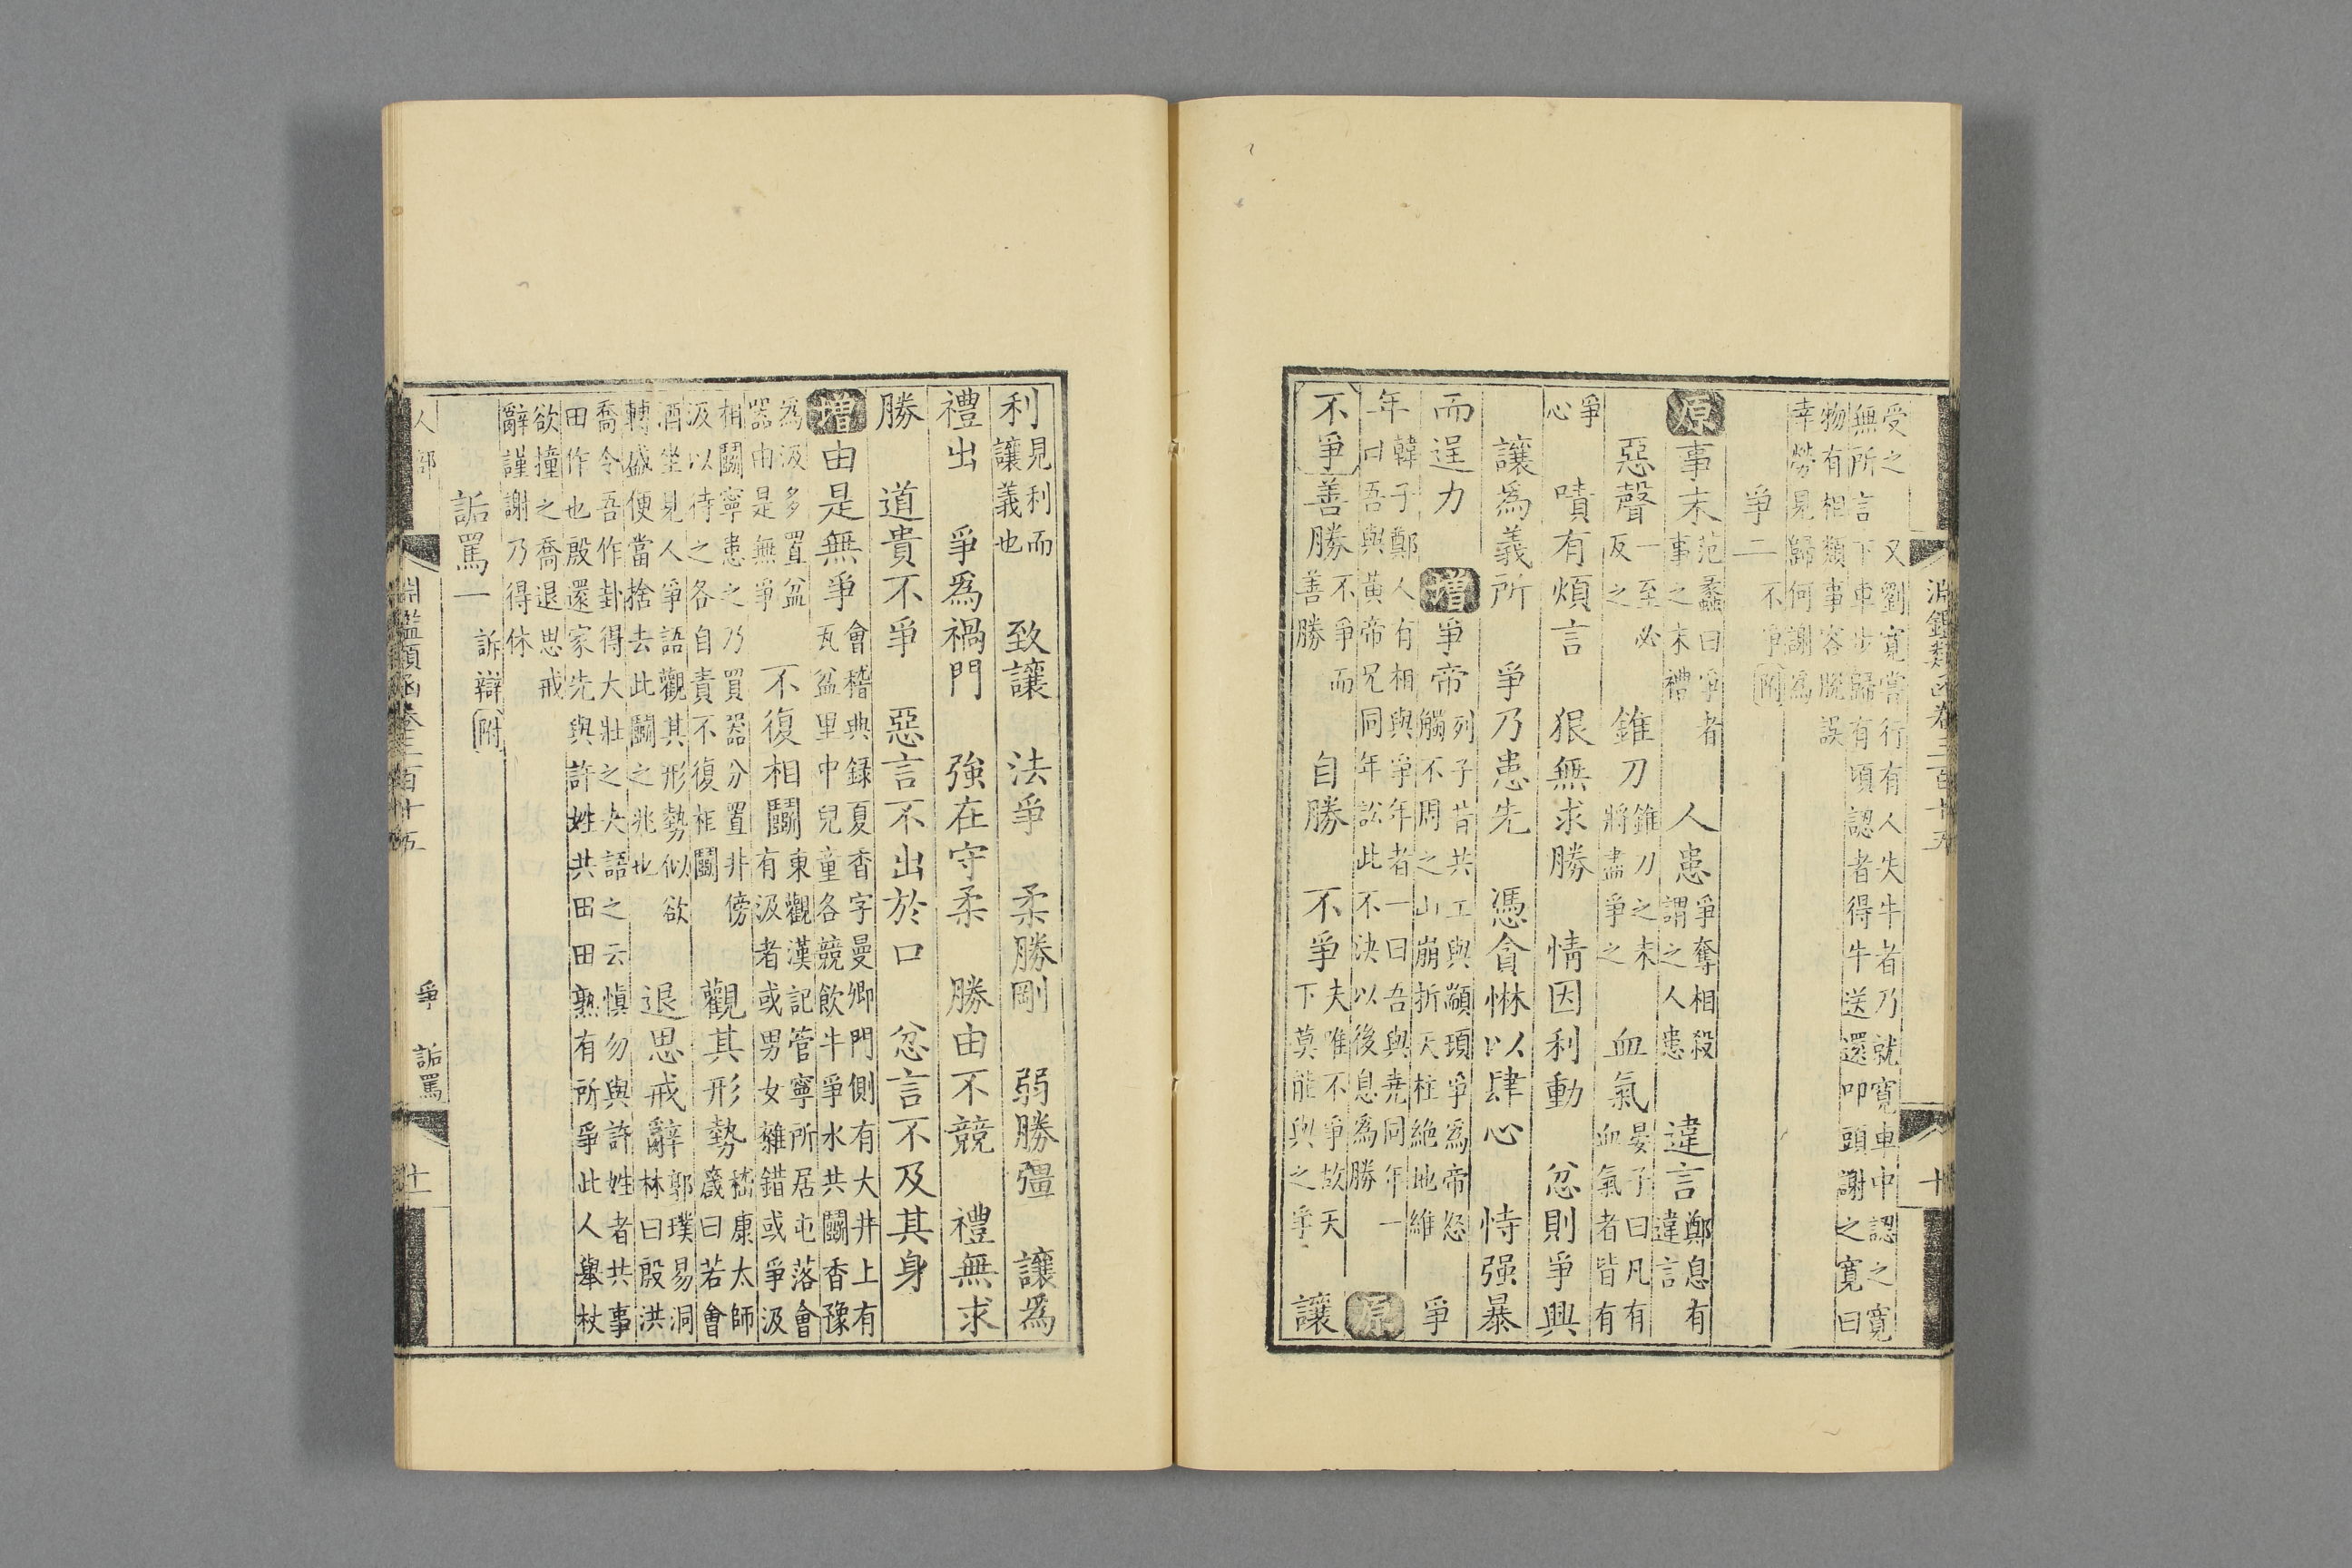 淵鑑類函卷三百十五　十
受之　又劉寬嘗行有人失牛者乃就寬車中認之寬
無所言下車步歸有頃認者得牛送還叩頭謝之寬曰
物有相類事容脫誤
幸勞見歸何謝為
爭二　不爭附
原　事末　范蠡曰爭者事之末禮　人患　爭奪相殺謂之人患　違言　鄭息有違言
惡聲　一至必反之　錐刀　錐刀之末將盡爭之　血氣　晏子曰凡有血氣者皆有
爭心　嘖有煩言　狠無求勝　情因利動　忿則爭興
讓爲義所　爭乃患先　憑貪惏以肆心　恃强暴
而逞力　增　爭帝　列子昔共工與顓頊爭爲帝怒觸不周之山崩折天柱絶地維　爭
年　韓子鄭人有相與爭年者一曰吾與堯同年一曰吾與黃帝兄同年訟此不決以後息爲勝　原
不爭　善勝　不爭而善勝　自勝　不爭　夫唯不爭故天下莫能與之爭　讓
利　見利而讓義也　致讓　法爭　柔勝剛　弱勝彊　讓爲
禮出　爭爲禍門　強在守柔　勝由不競　禮無求
勝　道貴不爭　惡言不出於口　忿言不及其身
增　由是無爭　會稽典録夏香字曼卿門側有大井上有瓦盆里中兒童各競飲牛爭水共鬭香豫
為汲多置盆器由是無爭　不復相鬭　東觀漢記管寧所居屯落會有汲者或男女雜錯或爭汲
相鬭寧患之乃買器分置井傍汲以待之各自責不復相鬭　觀其形勢　嵇康太師箴曰若會
酒坐見人爭語觀其形勢似欲轉盛便當捨去此鬭之兆也　退思戒辭　郭璞易洞林曰殷洪
喬令吾作卦得大壯之夬語之云慎勿與許姓者共事田作也殷還家先與許姓共田田熟有所爭此人舉杖
欲撞之喬退思戒辭謹謝乃得休
詬罵一　訴辯附
人部　淵鑑類函卷三百十五　爭　詬罵　十一